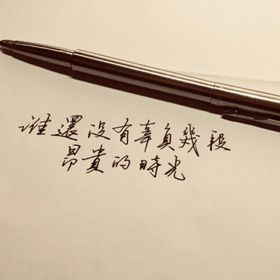 谁還沒有辜負幾段
昂貴的時光